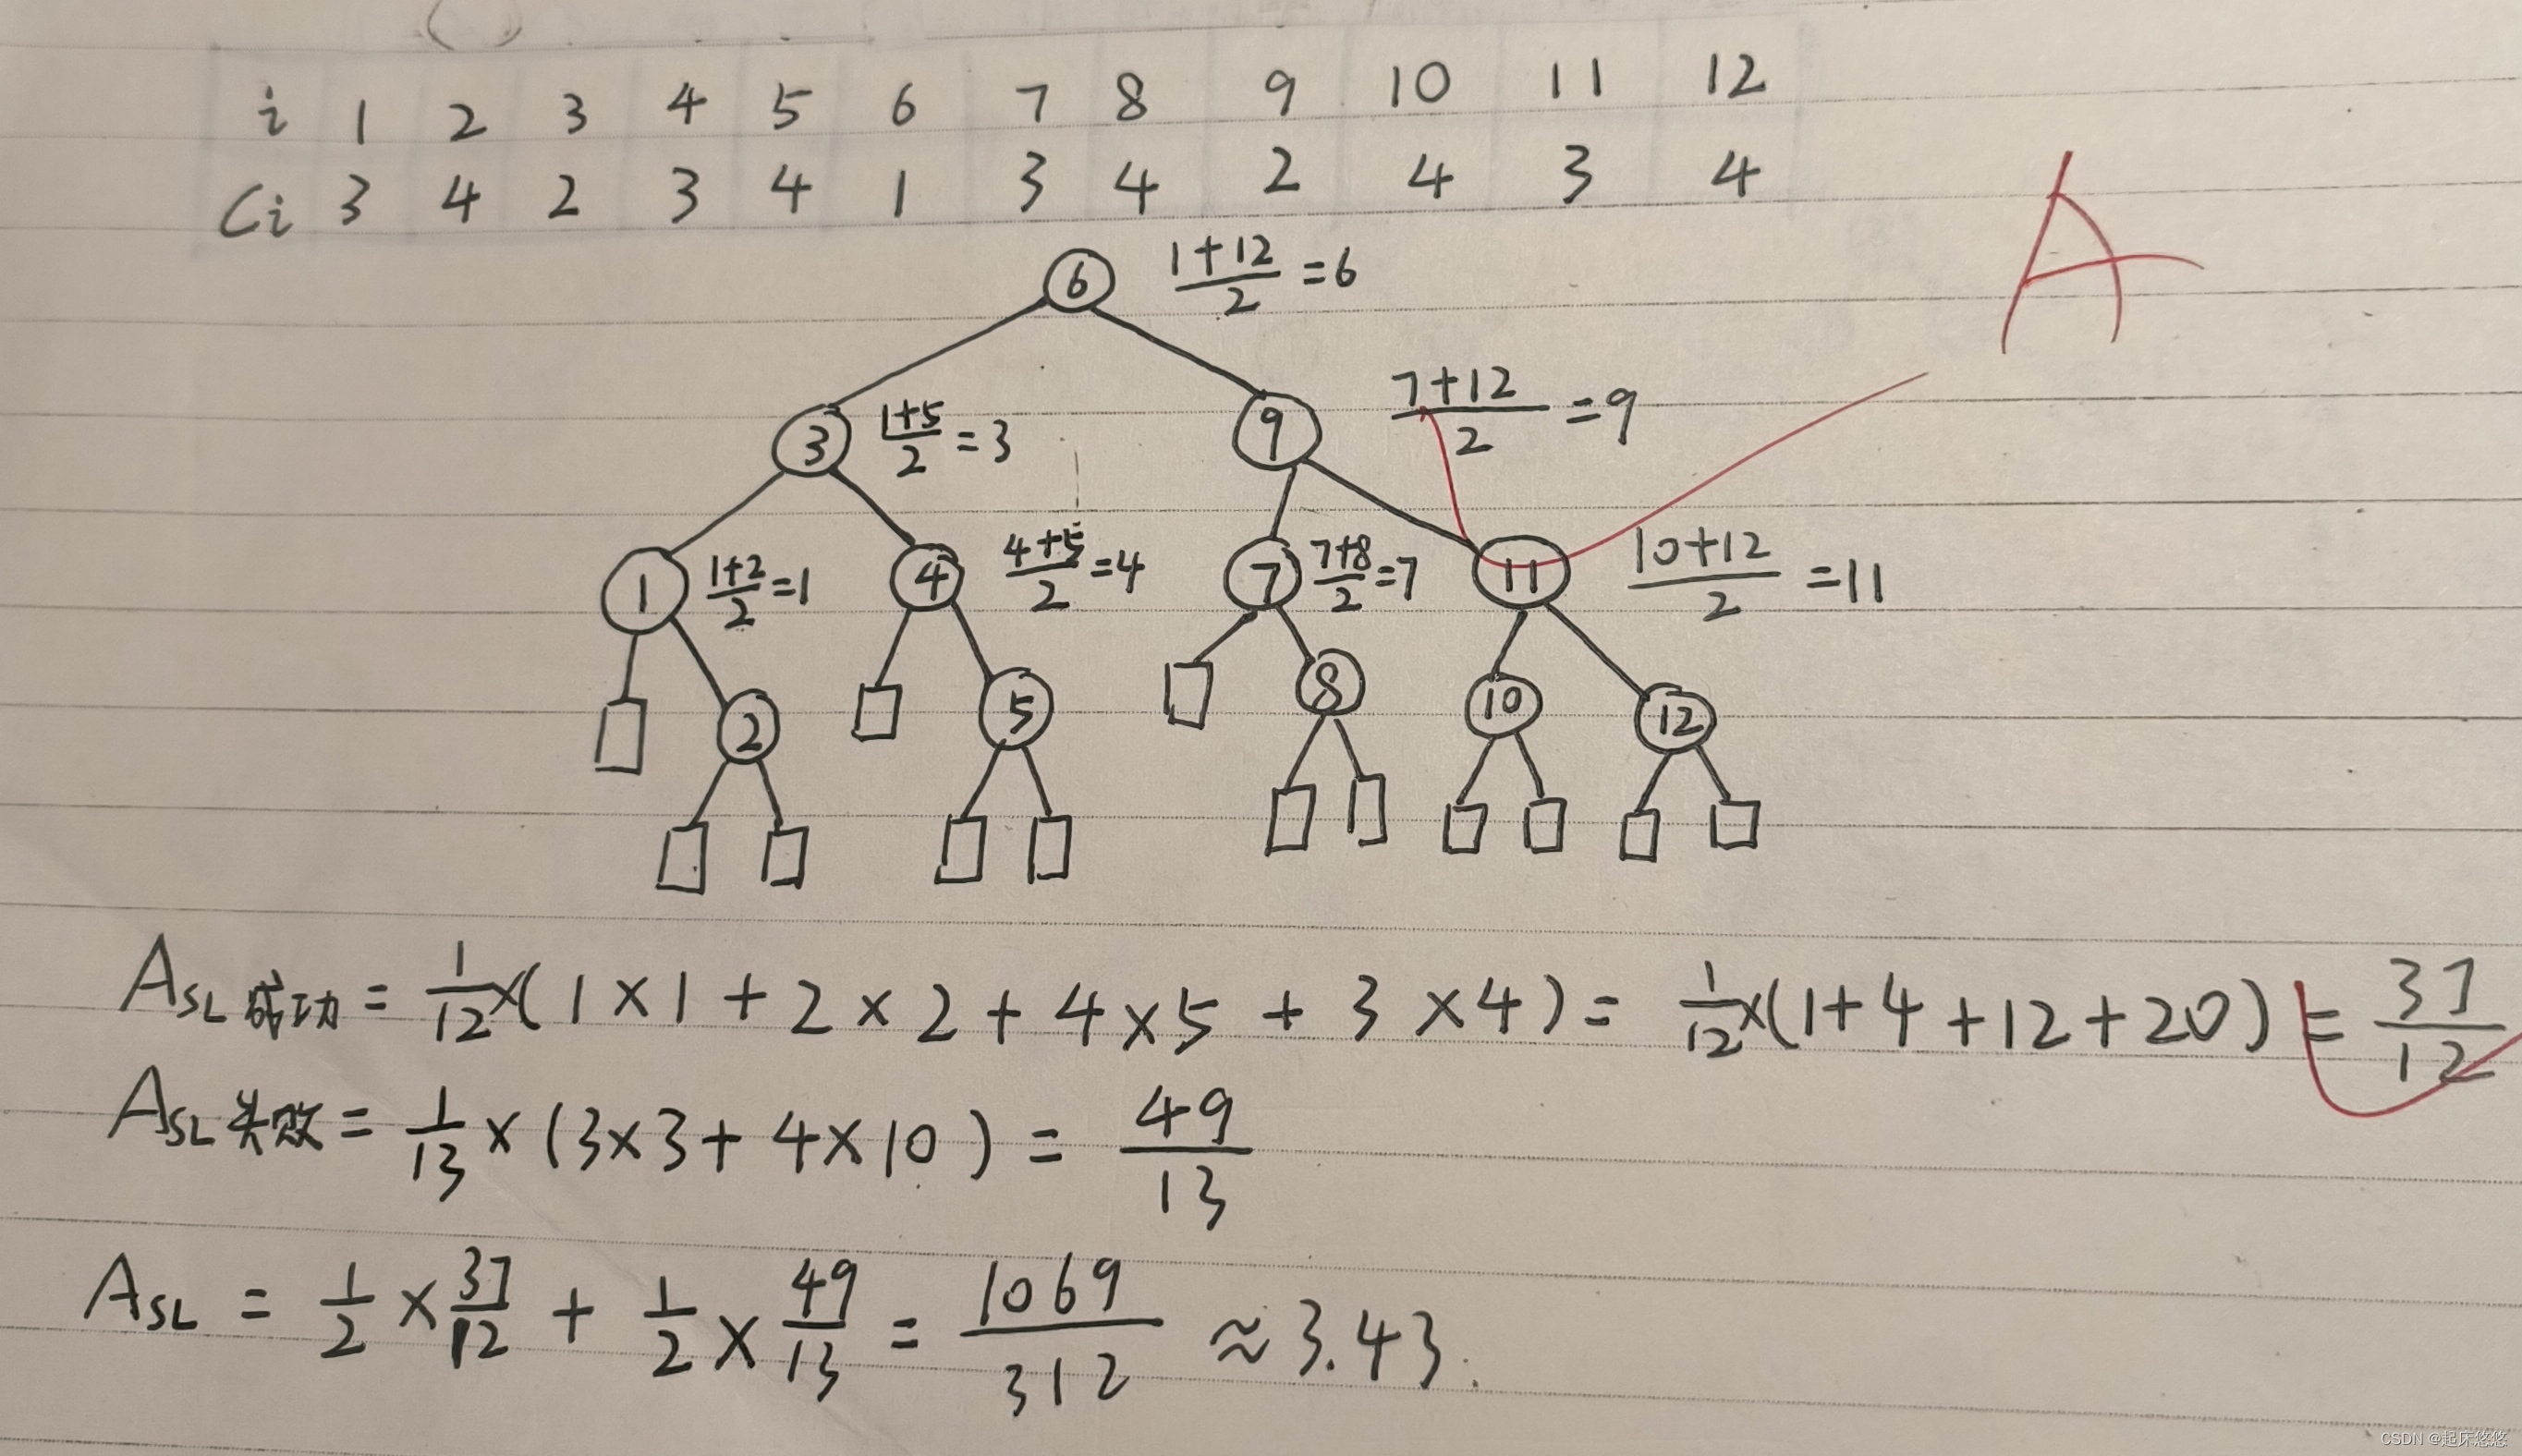 i 1 2 3 4 5 6 7 8 9 10 11 12
Ci 3 4 2 3 4 1 3 4 2 4 3 4
A
6 1+12/2 =6
3 1+5/2 =3 9 7+12/2 =9
1 1+2/2 =1 4 4+5/2 =4 7 7+8/2 =7 11 10+12/2 =11
2 5 8 10 12
ASL成功 = 1/12×(1×1+2×2+4×5+3×4) = 1/12×(1+4+12+20) = 37/12
ASL失败 = 1/13×(3×3+4×10) = 49/13
ASL = 1/2×37/12+1/2×49/13 = 1069/312 ≈3.43.
CSDN @起床悠悠